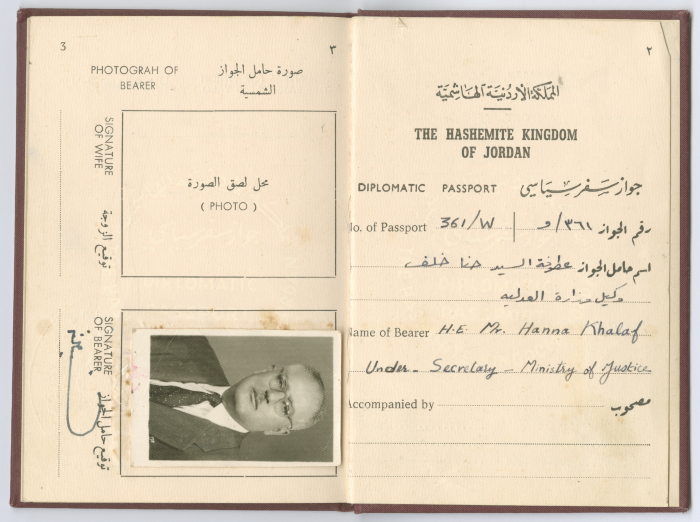 ٢
المملكة الأردنية الهاشمية
THE HASHEMITE KINGDOM
OF JORDAN
DIPLOMATIC PASSPORT جواز سفر سياسي
No. of Passport 361/W | ٣٦١/و رقم الجواز
اسم حامل الجواز عطوفة السيد حنا خلف
وكيل وزارة العدليه
Name of Bearer H.E. Mr. Hanna Khalaf
Under-Secretary - Ministry of Justice
Accompanied by مصحوب
3 ٣
PHOTOGRAH OF
BEARER
صورة حامل الجواز
الشمسية
SIGNATURE
OF WIFE
توقيع الزوجة
محل لصق الصورة
( PHOTO )
SIGNATURE
OF BEARER
توقيع حامل الجواز